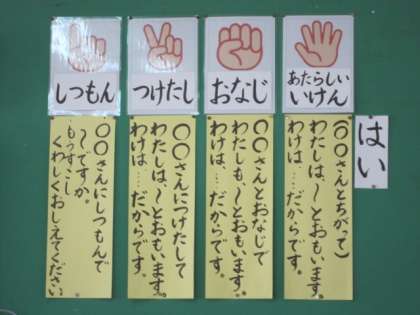 はい
あたらしい
いけん
(〇〇さんとちがって)
わたしは、〜とおもいます。
わけは……だからです。
おなじ
〇〇さんとおなじで
わたしも、〜とおもいます。
わけは……だからです。
つけたし
〇〇さんにつけたして
わたしは、〜とおもいます。
わけは……だからです。
しつもん
〇〇さんにしつもんで
〜ですか。
もうすこし
くわしくおしえてください